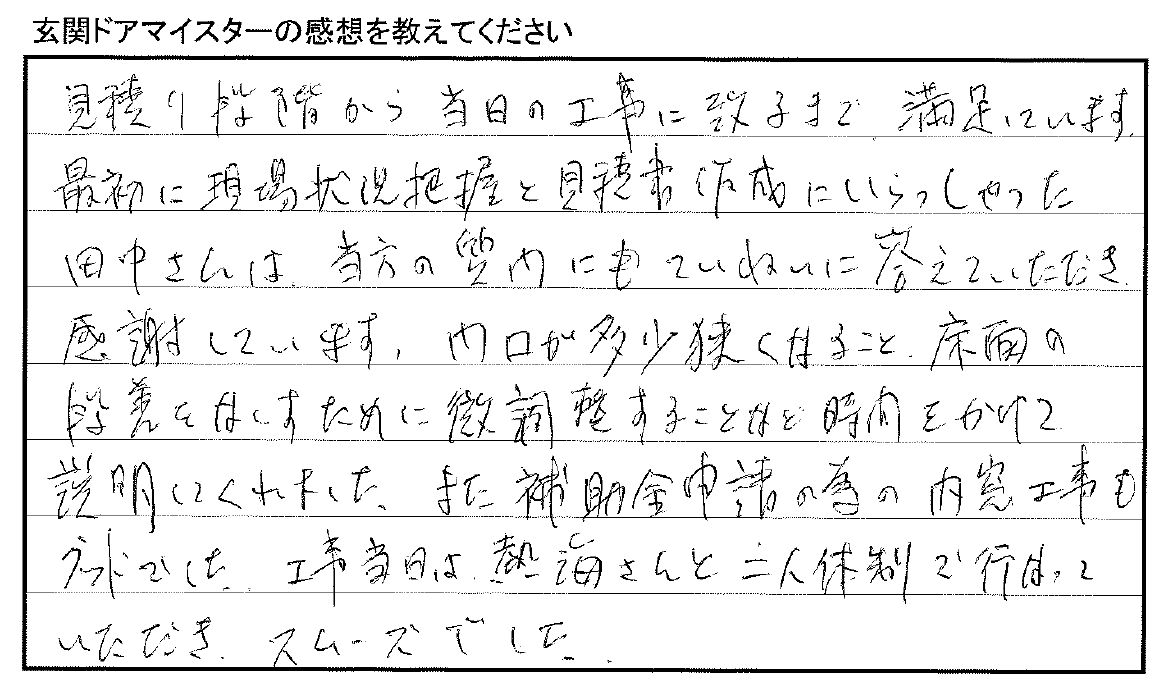 玄関ドアマイスターの感想を教えてください
見積り段階から当日の工事に致るまで、満足しています。
最初に現場状況把握と見積書作成にいらっしゃった
田中さんは、当方の質問にもていねいに答えていただき、
感謝しています。間口が多少狭くなること、床面の
段差をなくすために微調整することなど時間をかけて
説明してくれました。また補助金申請の為の内窓工事も
グッドでした。工事当日は、熱海さんと二人体制で行なって
いただき、スムーズでした。